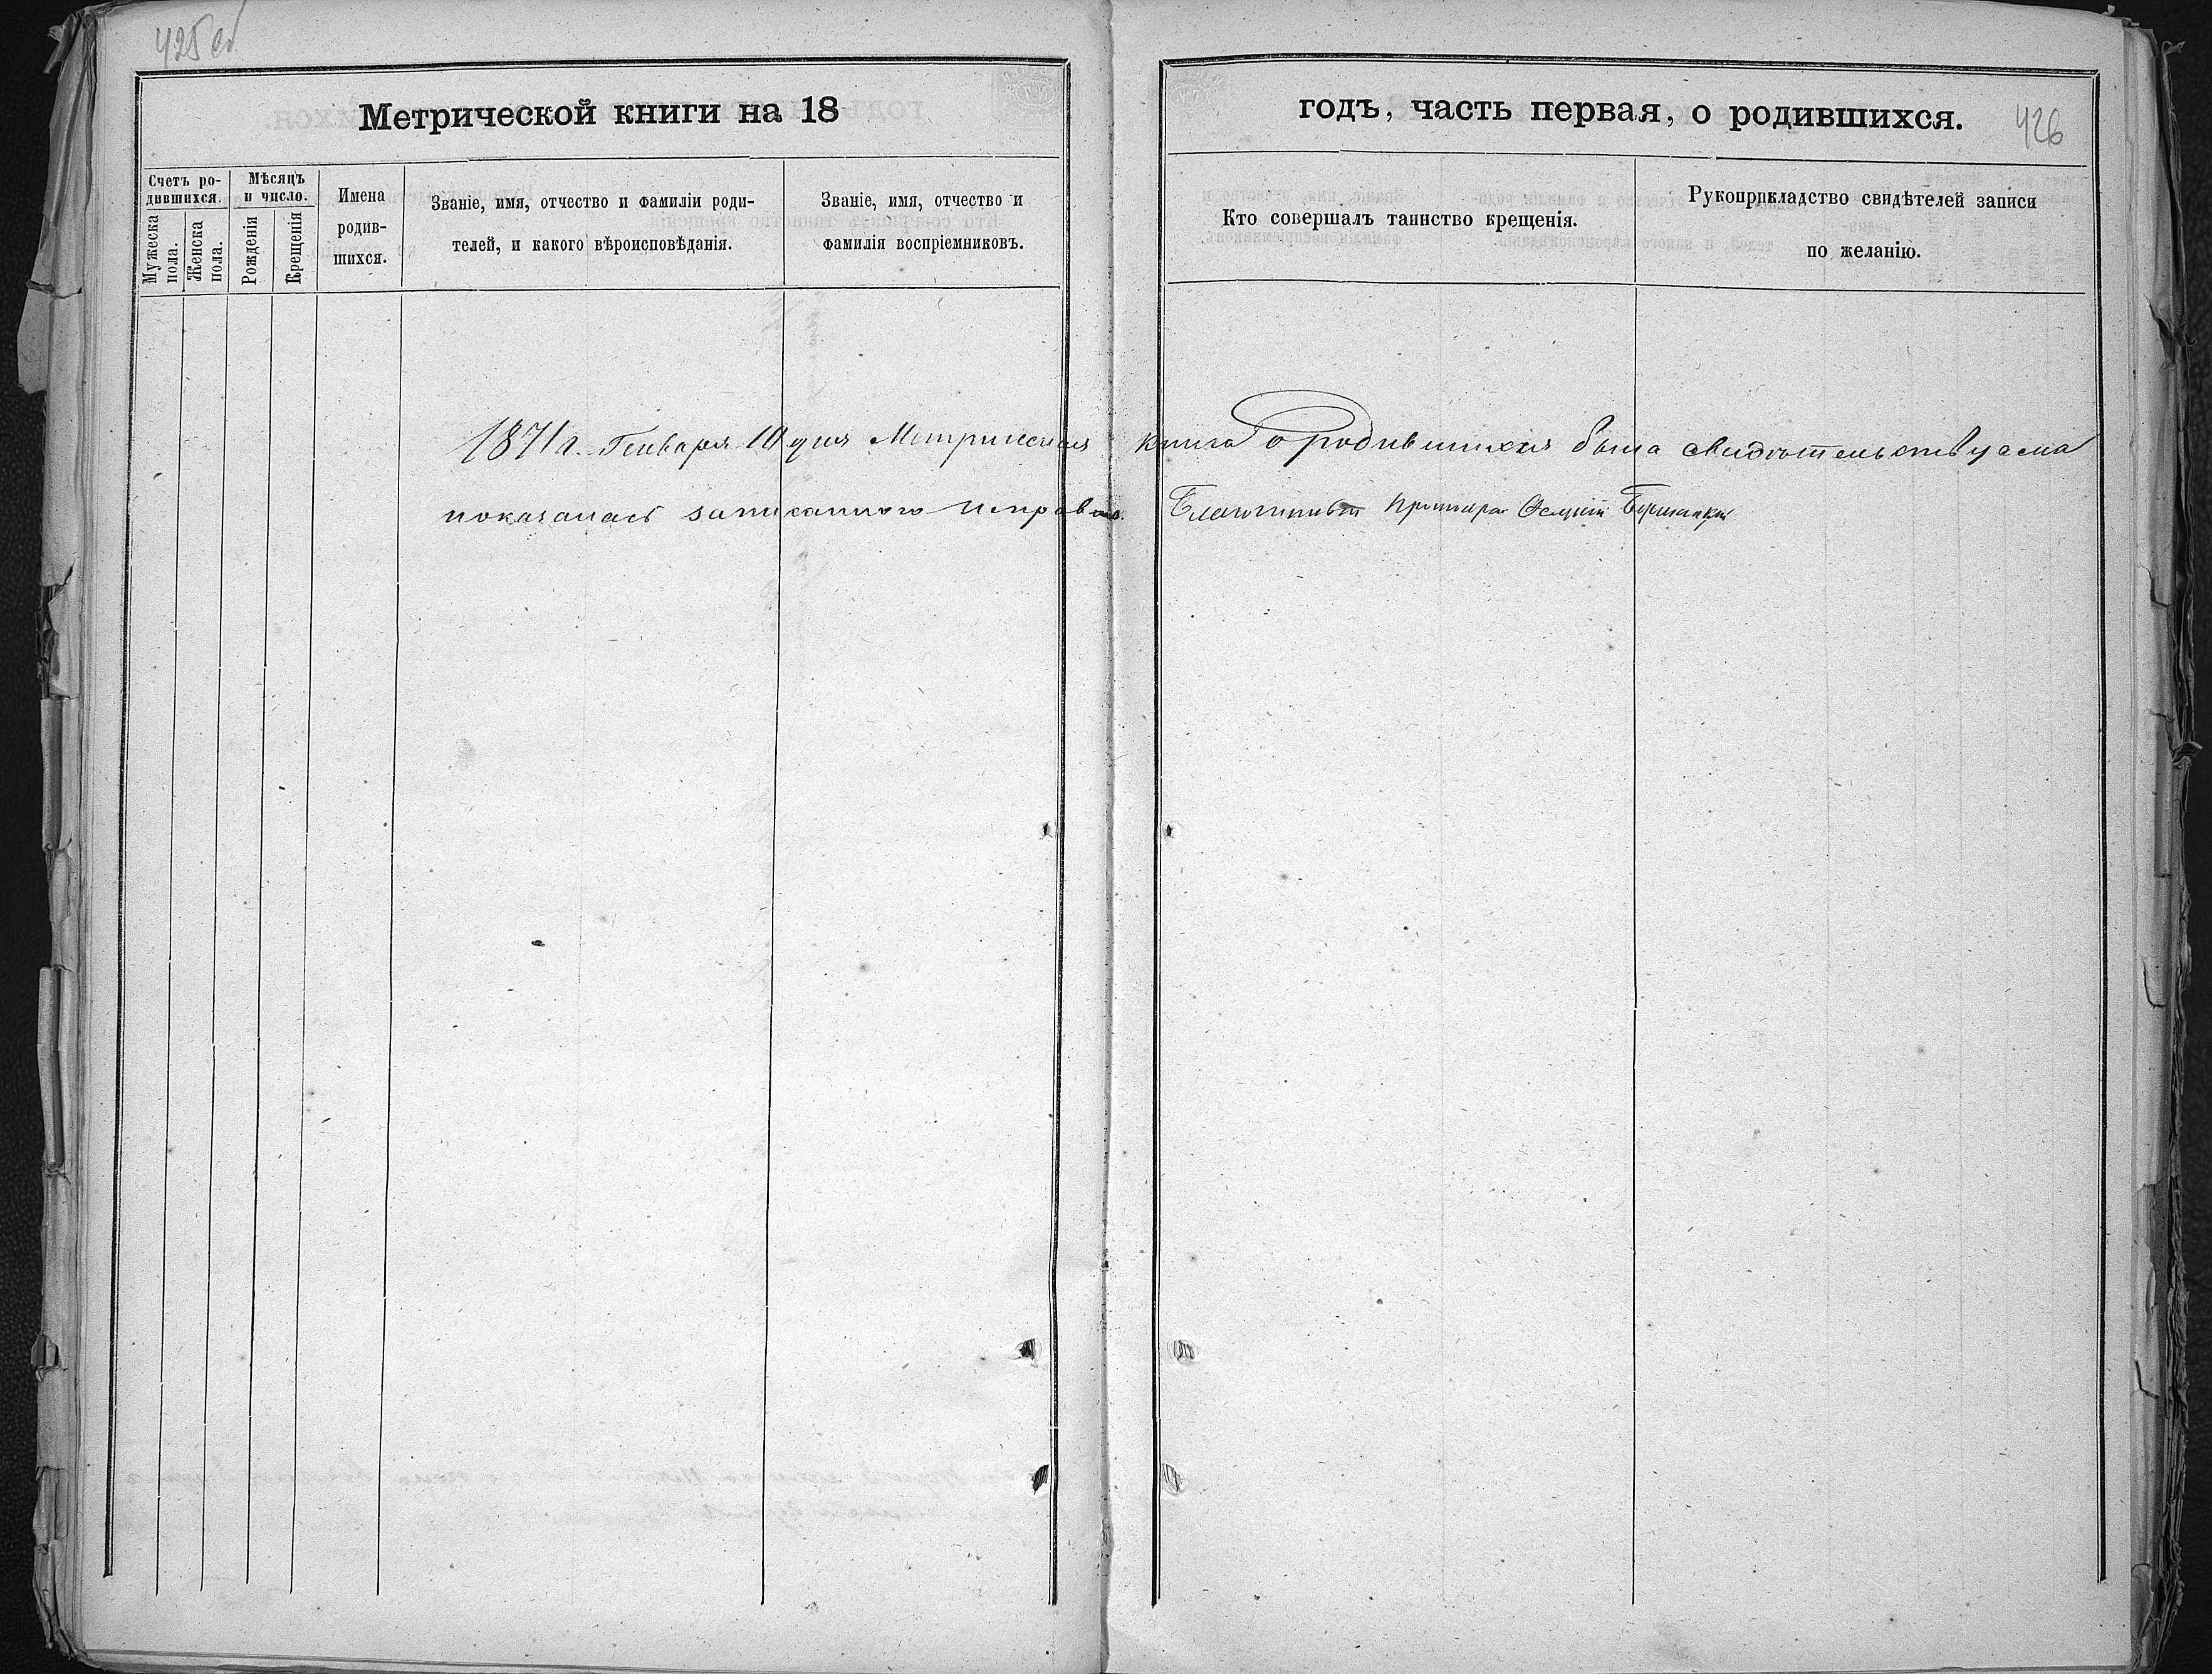 425 об
Метрической книги на 18
Счетъ ро-
дившихся.
Мужеска
пола.
Женска
пола.
Мѣсяцъ
и число.
Рожденія
Крещенія
Имена
родив-
шихся.
Званіе, имя, отчество и фамиліи роди-
телей, и какого вѣроисповѣданія.
Званіе, имя, отчество и
фамилія воспріемниковъ.
годъ, часть первая, о родившихся.
426
Кто совершалъ таинство крещенія.
Рукоприкладство свидѣтелей записи
по желанію.
1871 г. Генваря 10 дня Метрическая книга о родившихся была свидѣтельствуема
показалась записанного исправно. Благочинный